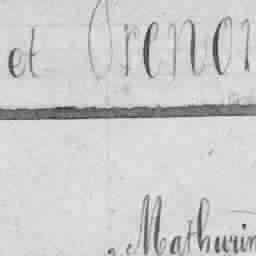 et Prenom
Mathurin